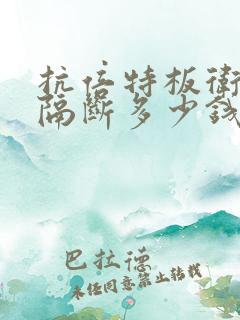 抗倍特板衛
隔斷多少錢
巴拉德
未经同意禁止转载